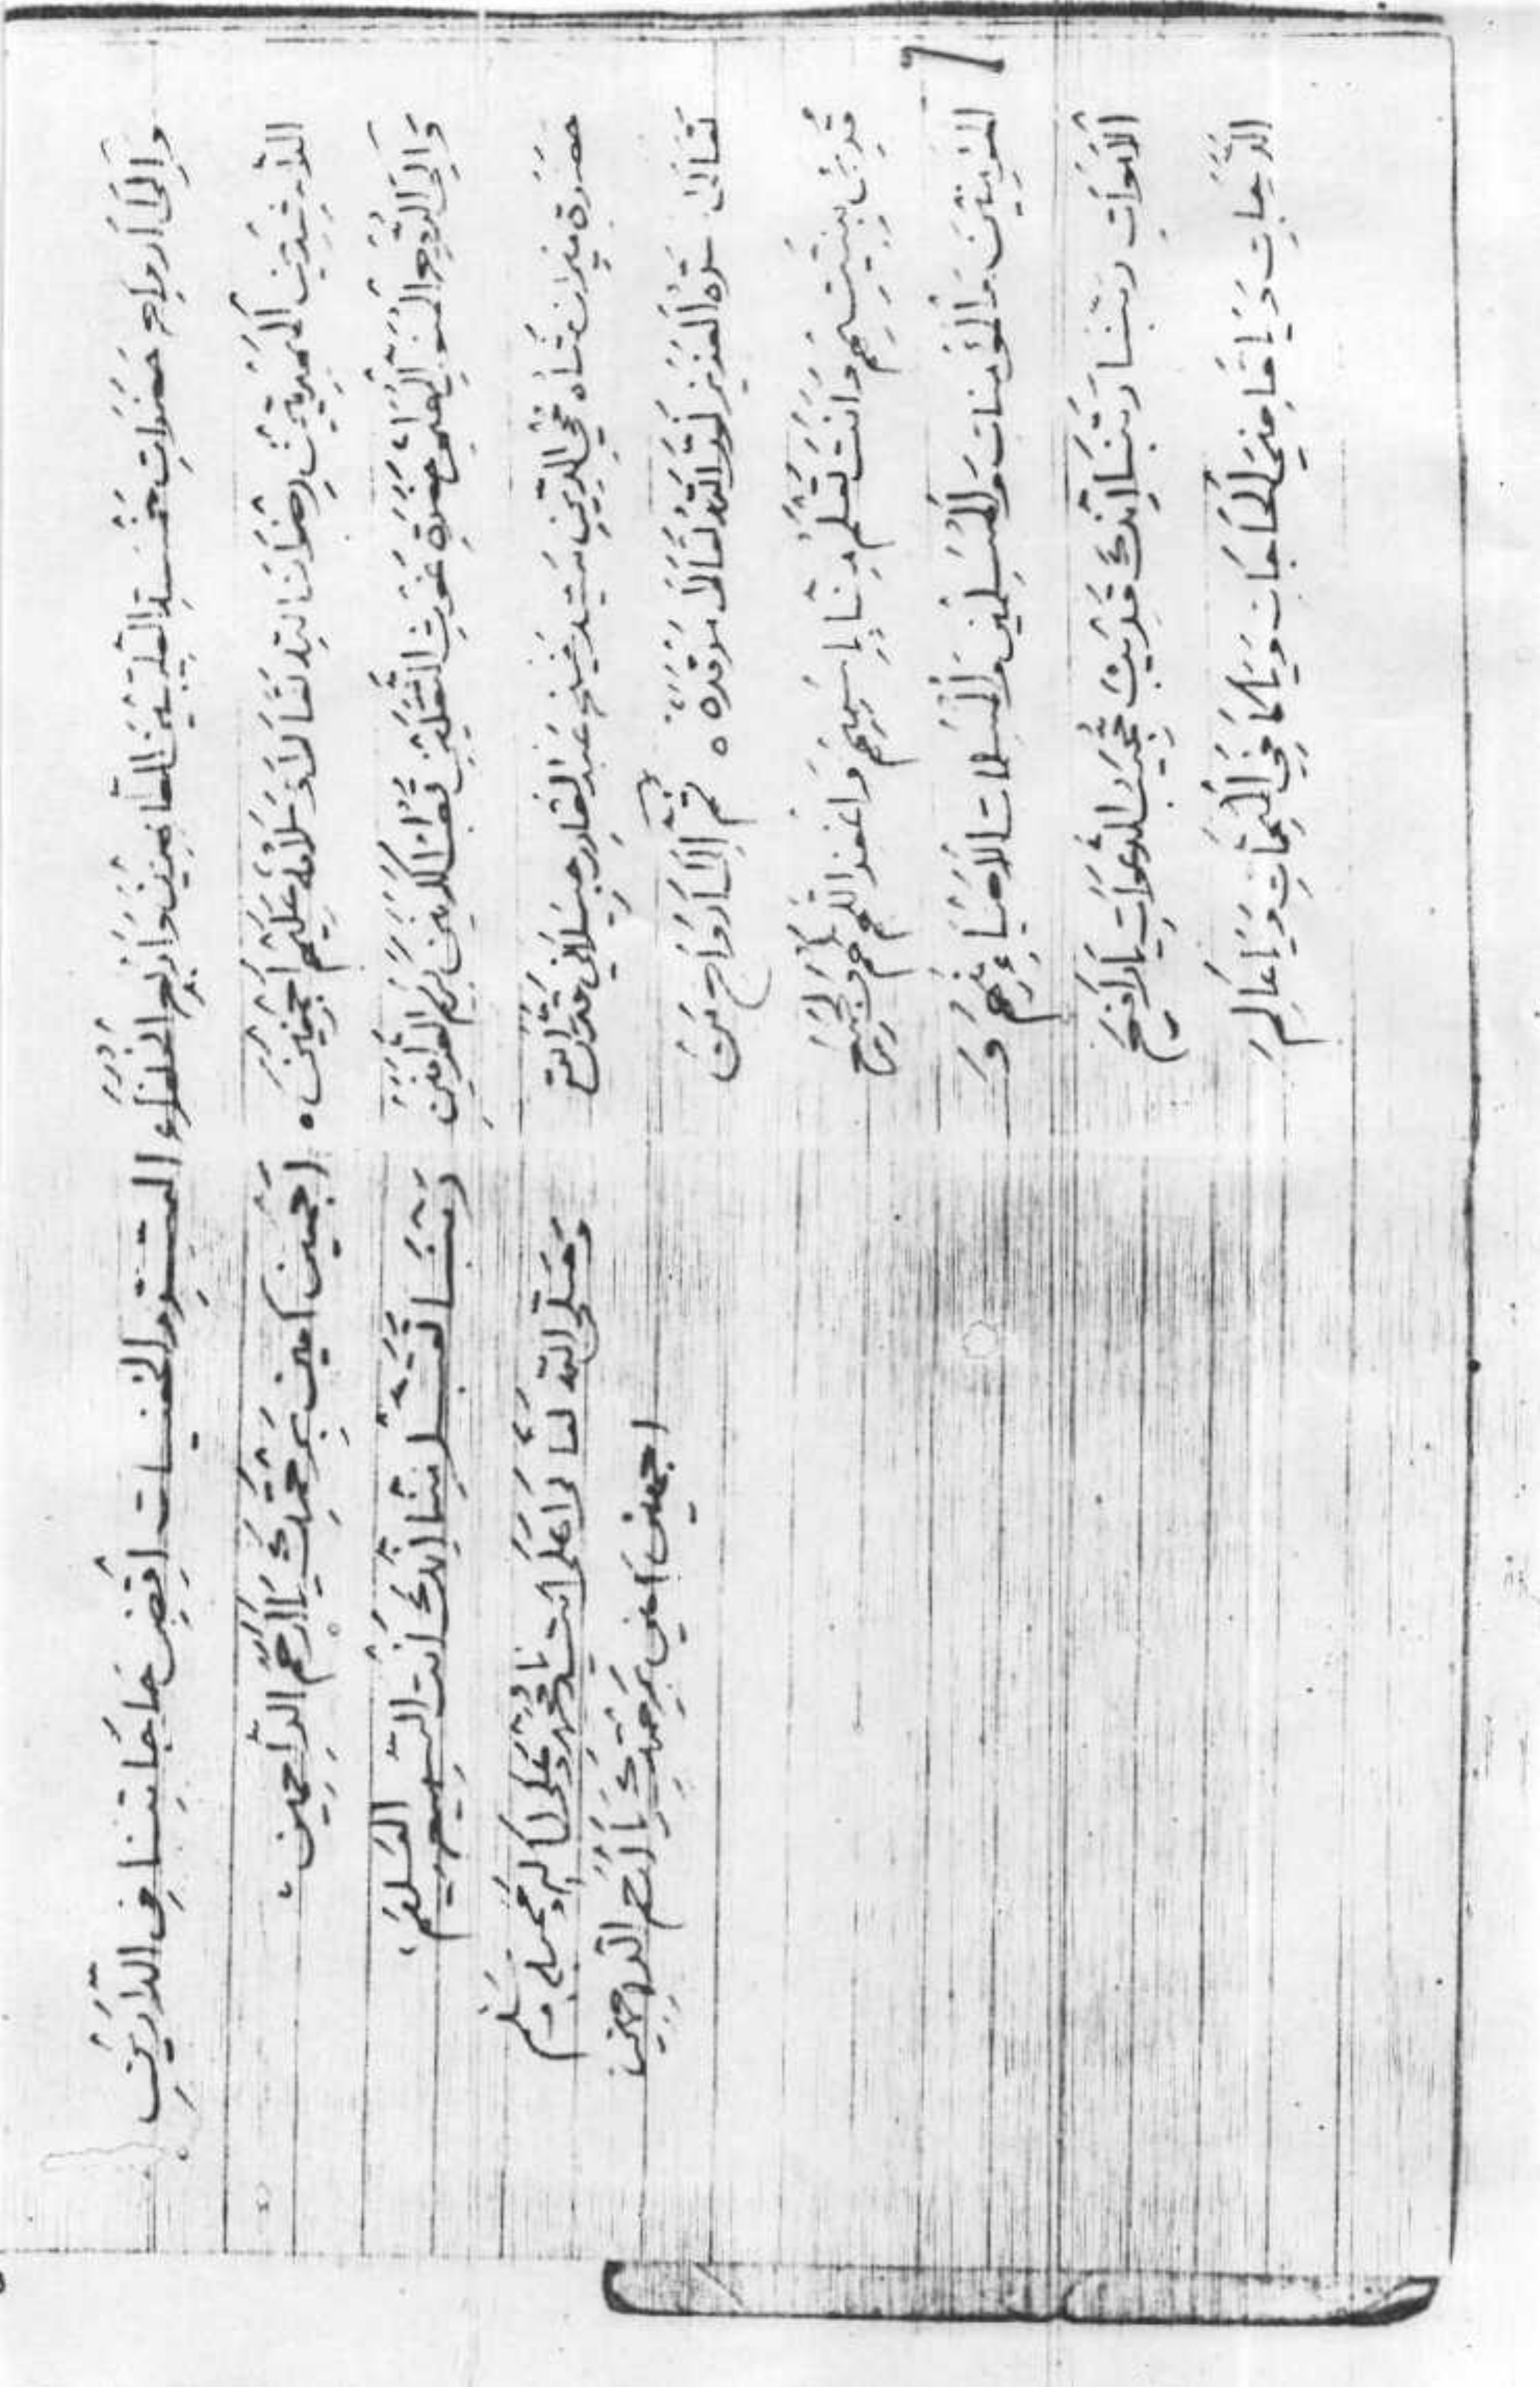 وَإِلَى أَرواحِ حَضَرَاتِ خَمْسَةِ الطَّيِّبِيْنَ الطَّاهِرِيْنَ وَأَرْبَعِ الْخُلَفَاءِ
الرَّاشِدِيْنَ الْمَهْدِيِّيْنَ رِضْوَانُ اللّٰهِ تَعَالَى وَسَلَامُهُ عَلَيْهِمْ أَجْمَعِيْنَ ٥
وَإِلَى الرُّوحِ الْمُنَوَّرِ حَضْرَةِ غَوْثِ الثَّقَلَيْنِ قُطْبِ الْكَوْنَيْنِ كَرِيْمِ الطَّرَفَيْنِ
حضرة ميران شاه محي الدين سيد شيخ عبد القادر جيلاني قدس الله
تَعَالَى سِرَّهُ الْعَزِيْزَ نَوَّرَ اللّٰهُ تَعَالَى مَرْقَدَهُ ٥ ثُمَّ إِلَى أَرْوَاحِ مَنْ
قُرِئَ بِنِيَّتِهِمْ وَانْتَ تَعْلَمُ مِنَّا بِإِسْمِهِمْ وَاغْفِرِ اللّٰهُمَّ جَمِيْعَ
الْمُؤْمِنِيْنَ وَالْمُؤْمِنَاتِ وَالْمُسْلِمِيْنَ وَالْمُسْلِمَاتِ الْأَحْيَاءِ مِنْهُمْ وَ
الْأَمْوَاتِ رَبَّنَا رَبَّنَا إِنَّكَ قَرِيْبٌ مُجِيْبُ الدَّعَوَاتِ يَا رَافِعَ
الدَّرَجَاتِ وَيَا قَاضِيَ الْحَاجَاتِ وَيَا كَافِيَ الْمُهِمَّاتِ وَيَا عَالِمَ
السِّرِّ والخفيات اِقْضِ حَاجَاتِنَا فِى الدَّارَيْنِ
اجمعين آمين بِرَحْمَتِكَ يَا أَرْحَمَ الرَّاحِمِيْنَ
رَبَّنَا تَقَبَّلْ مِنَّا إِنَّكَ أَنْتَ السَّمِيْعُ الْعَلِيْمُ
وَصَلَّى اللّٰهُ تَعَالَى عَلَى سيدنا محمد وعلى اله وسلم
اجمعين آمين بِرَحْمَتِكَ يَا أَرْحَمَ الرَّاحِمِيْنَ